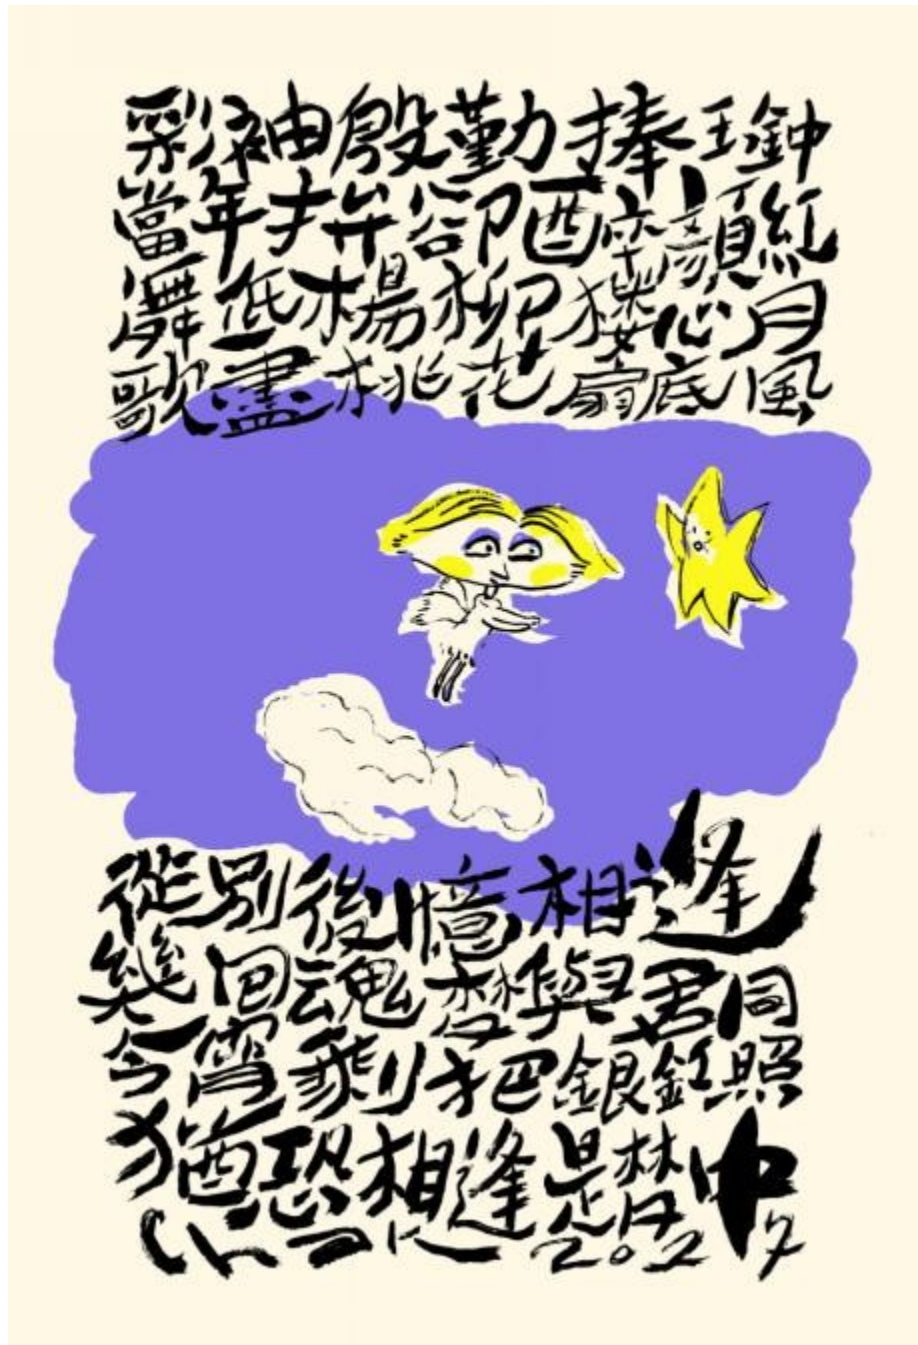 彩袖殷勤捧玉鈡
當年拚卻醉顏紅
舞低楊柳樓心月
歌盡桃花扇底風
從別後憶相逢
幾回魂夢與君同
今宵剩把銀釭照
猶恐相逢是夢中